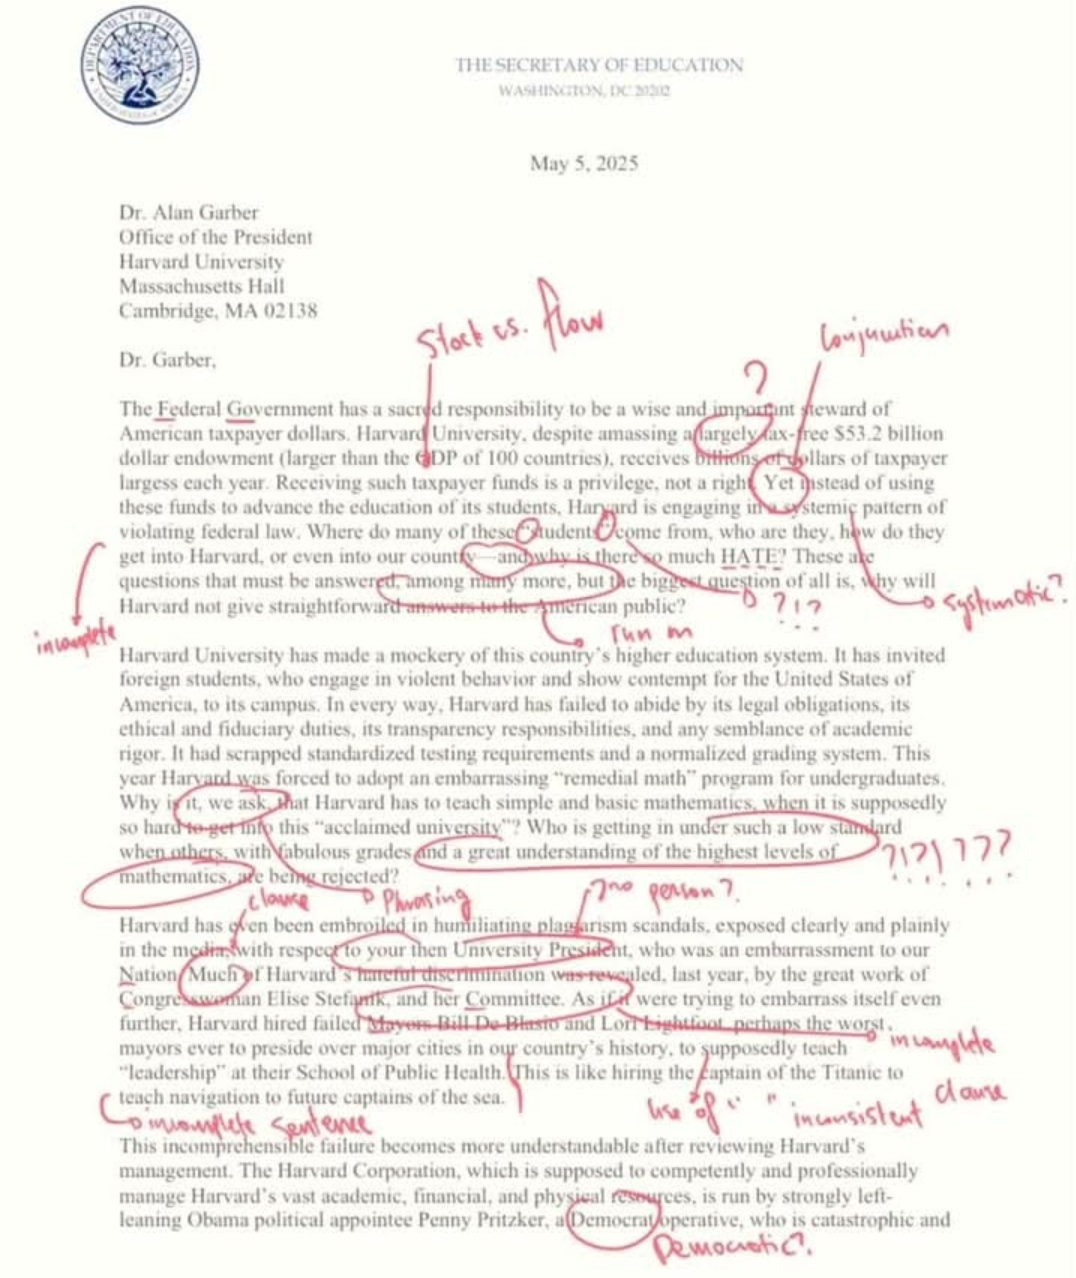 DEPARTMENT OF EDUCATION
UNITED STATES OF AMERICA
THE SECRETARY OF EDUCATION
WASHINGTON, DC 20202
May 5, 2025
Dr. Alan Garber
Office of the President
Harvard University
Massachusetts Hall
Cambridge, MA 02138
Stock vs. flow
Conjunction
Dr. Garber,
?
The Federal Government has a sacred responsibility to be a wise and important steward of
American taxpayer dollars. Harvard University, despite amassing a largely tax-free $53.2 billion
dollar endowment (larger than the GDP of 100 countries), receives billions of dollars of taxpayer
largess each year. Receiving such taxpayer funds is a privilege, not a right. Yet instead of using
these funds to advance the education of its students, Harvard is engaging in a systemic pattern of
violating federal law. Where do many of these “students” come from, who are they, how do they
get into Harvard, or even into our country—and why is there so much HATE? These are
questions that must be answered, among many more, but the biggest question of all is, why will
Harvard not give straightforward answers to the American public?
?!?
systematic?
incomplete
run on
Harvard University has made a mockery of this country’s higher education system. It has invited
foreign students, who engage in violent behavior and show contempt for the United States of
America, to its campus. In every way, Harvard has failed to abide by its legal obligations, its
ethical and fiduciary duties, its transparency responsibilities, and any semblance of academic
rigor. It had scrapped standardized testing requirements and a normalized grading system. This
year Harvard was forced to adopt an embarrassing “remedial math” program for undergraduates.
Why is it, we ask, that Harvard has to teach simple and basic mathematics, when it is supposedly
so hard to get into this “acclaimed university”? Who is getting in under such a low standard
when others, with fabulous grades and a great understanding of the highest levels of
mathematics, are being rejected?
?!?!???
clause
Phrasing
2nd person?
Harvard has even been embroiled in humiliating plagiarism scandals, exposed clearly and plainly
in the media, with respect to your then University President, who was an embarrassment to our
Nation. Much of Harvard’s hateful discrimination was revealed, last year, by the great work of
Congresswoman Elise Stefanik, and her Committee. As if it were trying to embarrass itself even
further, Harvard hired failed Mayors Bill De Blasio and Lori Lightfoot, perhaps the worst
mayors ever to preside over major cities in our country’s history, to supposedly teach
“leadership” at their School of Public Health. This is like hiring the captain of the Titanic to
teach navigation to future captains of the sea.
incomplete
clause
use of “ ” inconsistent
incomplete sentence
This incomprehensible failure becomes more understandable after reviewing Harvard’s
management. The Harvard Corporation, which is supposed to competently and professionally
manage Harvard’s vast academic, financial, and physical resources, is run by strongly left-
leaning Obama political appointee Penny Pritzker, a Democrat operative, who is catastrophic and
Democratic?